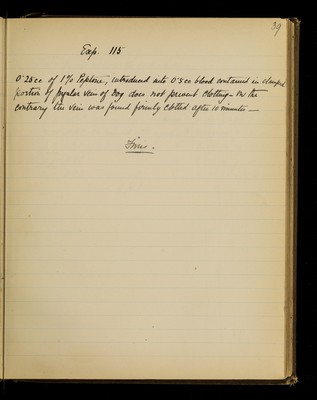 39
Exp. 115
0.25cc of 1% Peptone, introduced into 0.5cc blood contained in clamped
portion of jugular vein of Dog does not prevent clotting - On the
contrary the vein was found firmly clotted after 10 minutes —
Finis.